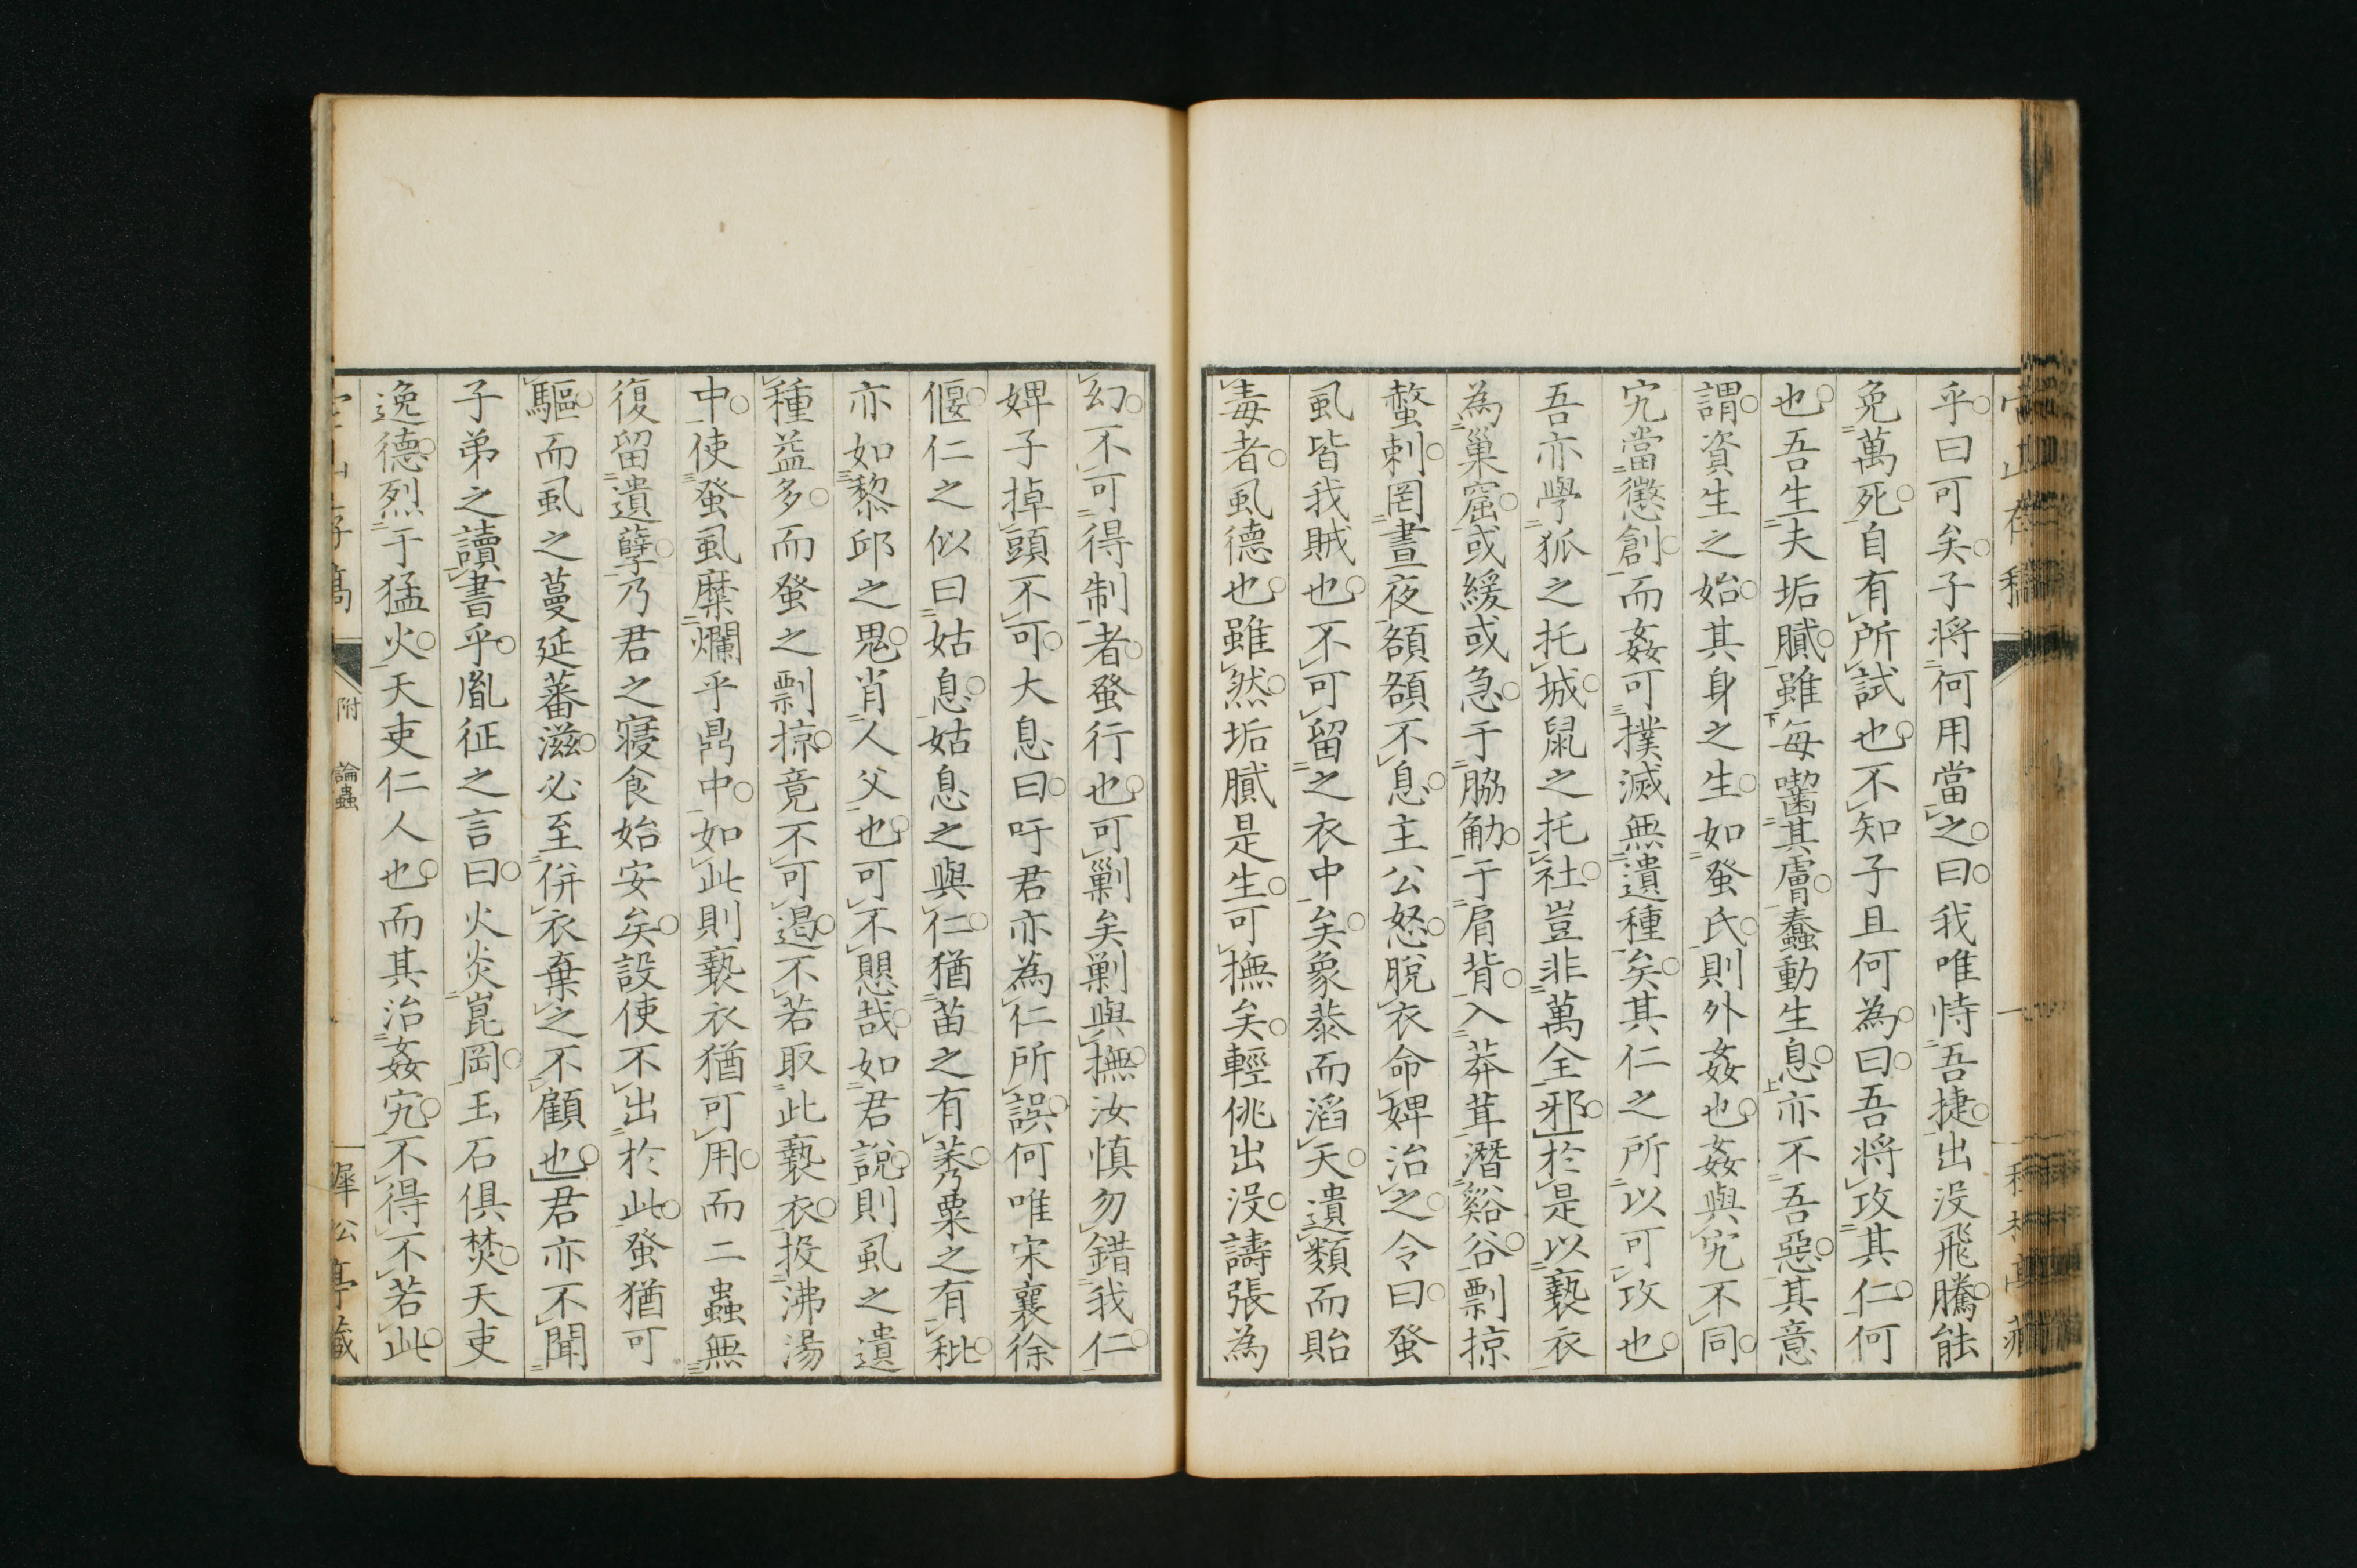 乎曰可矣子將何用當之曰我唯恃吾捷出没飛騰能
免萬死自有所試也不知子且何為曰吾將攻其仁何
也吾生夫垢膩雖每囓其膚蠢動生息亦不吾惡其意
謂資生之始其身之生如蚤氏則外姦也姦與宄不同
宄當懲創而姦可撲滅無遺種矣其仁之所以可攻也
吾亦學狐之托城鼠之托社豈非萬全邪於是以褻衣
為巢窟或緩或急于脇觔于肩背入莽茸潛谿谷剽掠
螫刺罔晝夜額額不息主公怒脫衣命婢治之令曰蚤
虱皆我賊也不可留之衣中矣象恭而滔天遺類而貽
毒者虱德也雖然垢膩是生可撫矣輕佻出没譸張為
幻不可得制者蚤行也可剿矣剿與撫汝慎勿錯我仁
婢子掉頭不可大息曰吁君亦為仁所誤何唯宋襄徐
偃仁之似曰姑息姑息之與仁猶苗之有莠粟之有秕
亦如黎邱之鬼肖人父也可不愳哉如君說則虱之遺
種益多而蚤之剽掠竟不可遏不若取此褻衣投沸湯
中使蚤虱糜爛乎鼎中如此則褻衣猶可用而二蟲無
復留遺孽乃君之寢食始安矣設使不出於此蚤猶可
驅而虱之蔓延蕃滋必至併衣棄之不顧也君亦不聞
子弟之讀書乎胤征之言曰火炎崑岡玉石俱焚天吏
逸德烈于猛火天吏仁人也而其治姦宄不得不若此
附 論蟲